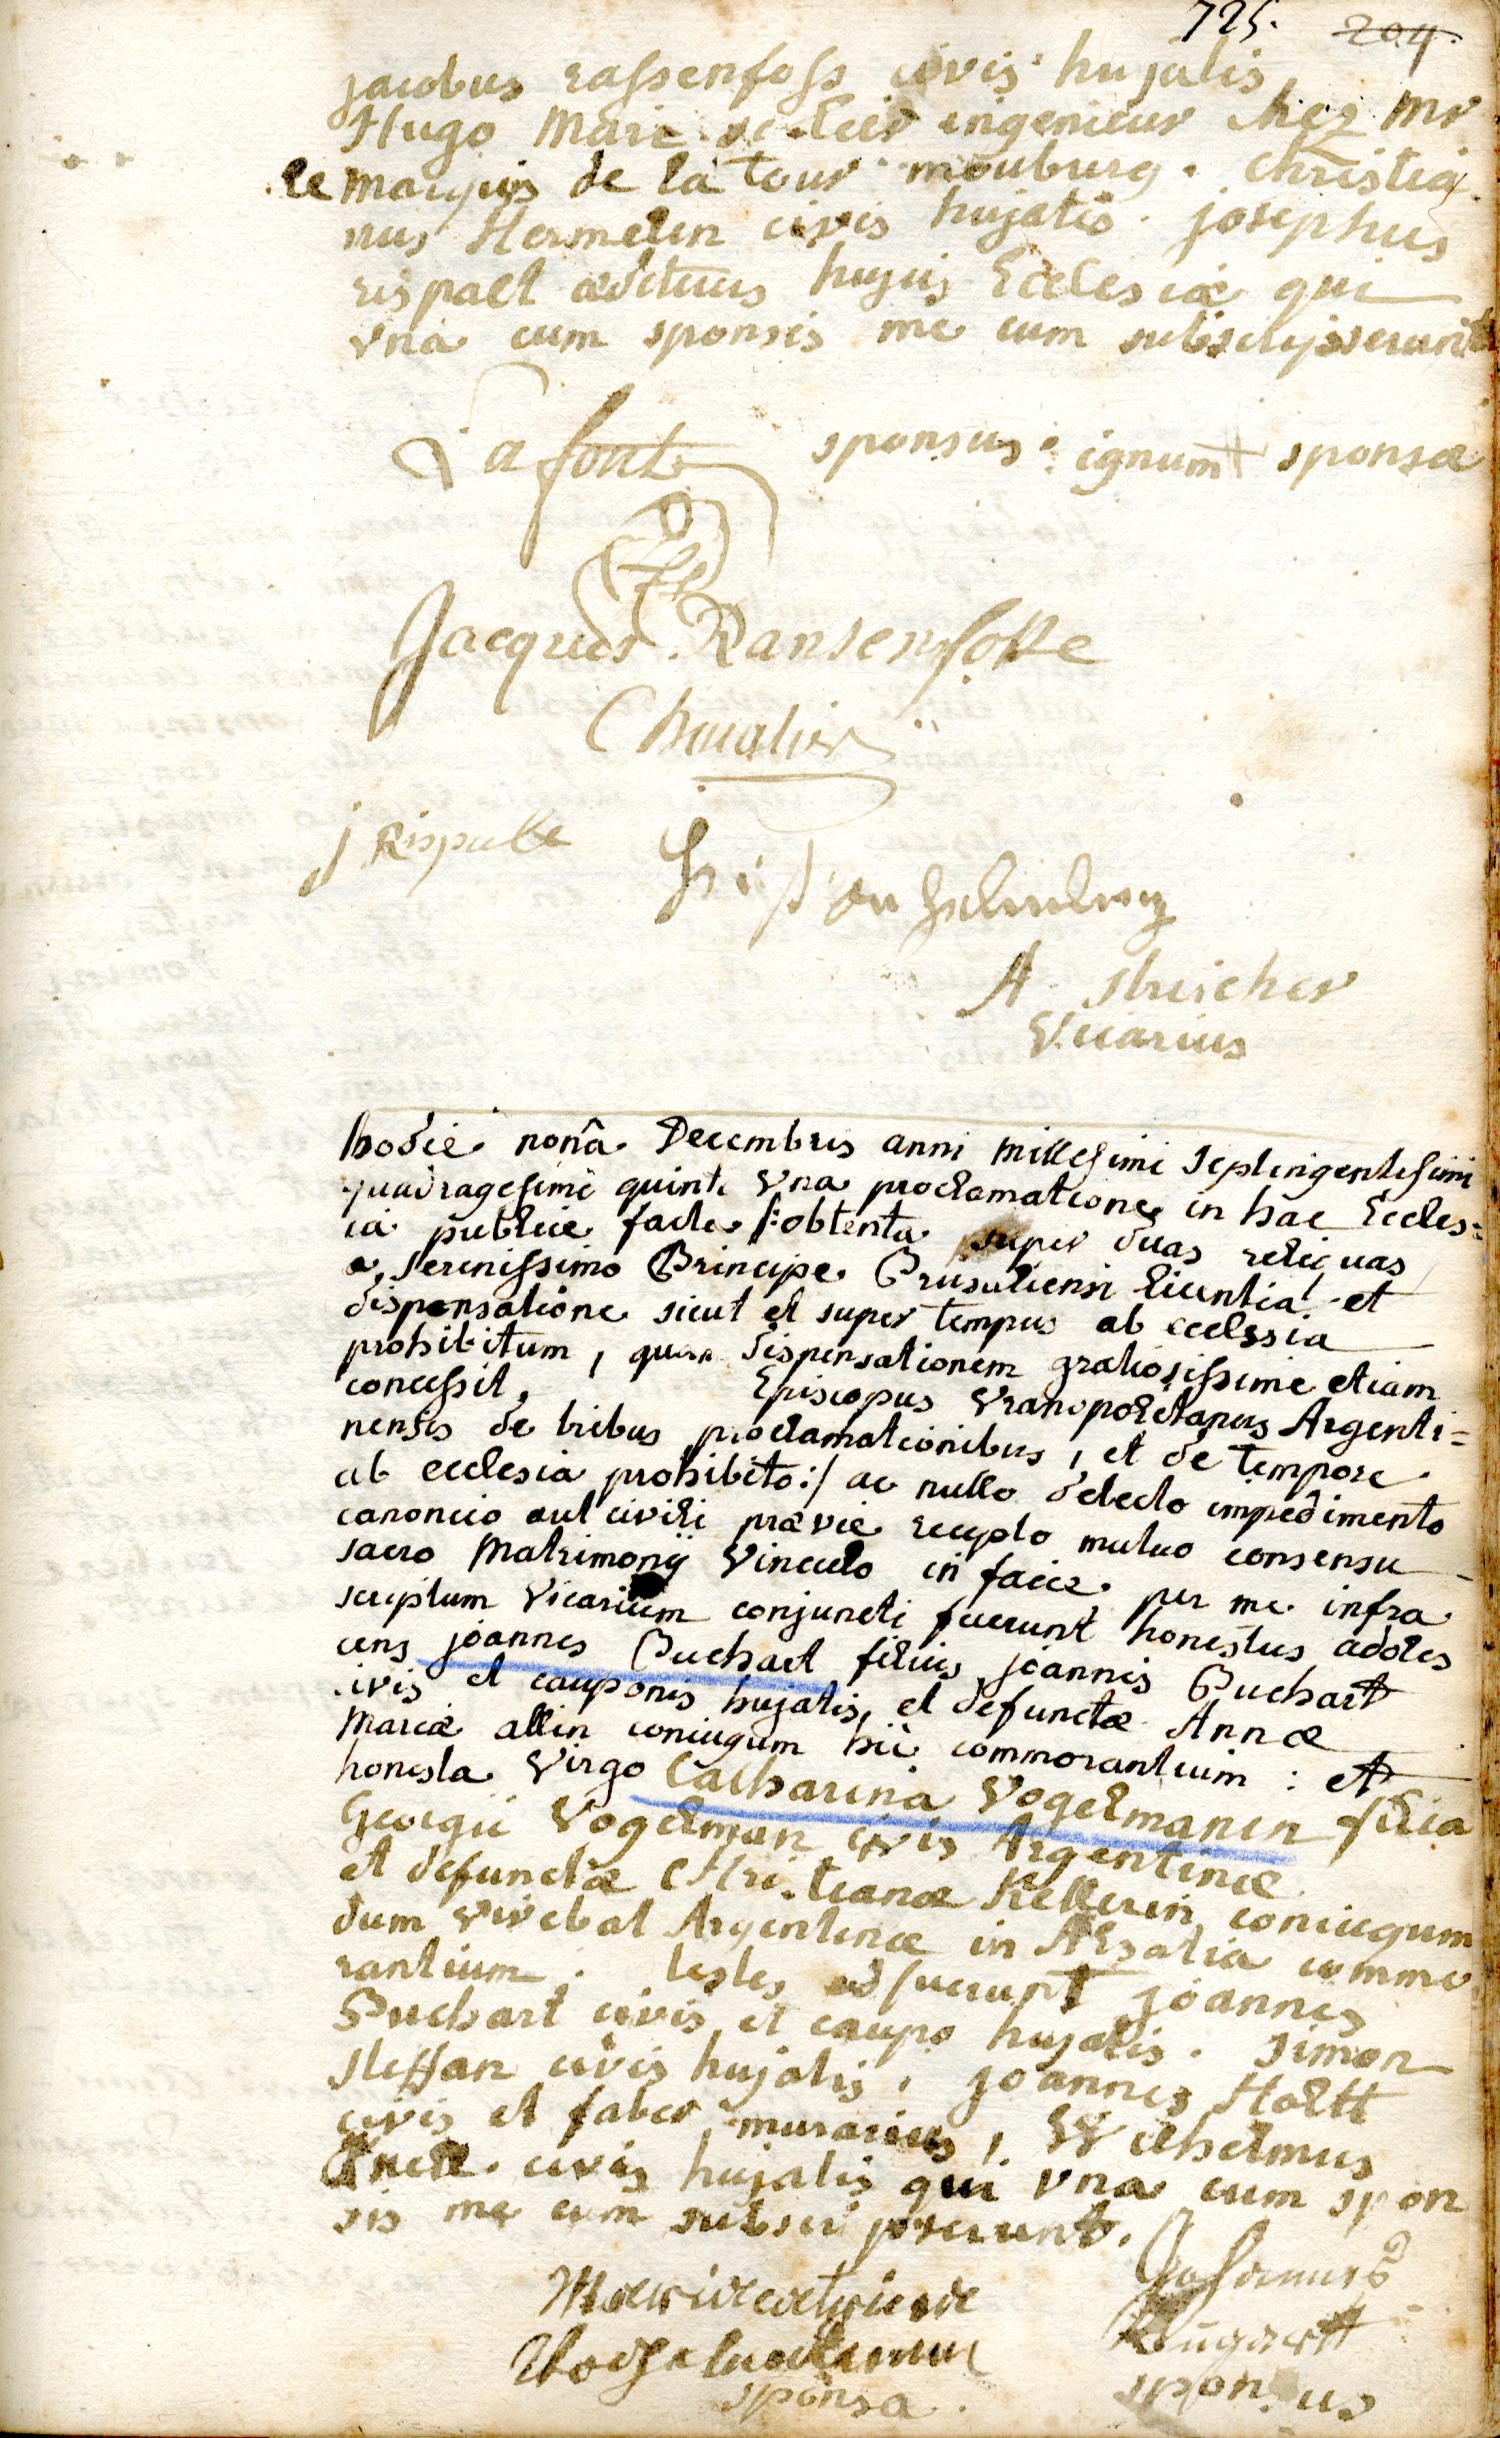 725. 204.
jacobus rassenfoss civis hujatis,
Hugo Marie ingenieur chez Mr
le marquis de la tour mouburg. Christia
nus Hermelen civis hujatis. josephus
rispalt ædituus hujus Ecclesiæ qui
vna cum sponsis me cum subscripserunt
Lafont sponsus. signum + sponsæ
Jacques Ransenfosse
Chualier
j Rispalle
A. Streicher
Vicarius
hodie nonâ Decembris anni millesimi septingentesimi
quadragesimi quinti vna proclamatione in hac Eccles=
ia publice facta /:obtenta super duas reliquas
a serenissimo Principe Brusaliensi licentia et
dispensatione sicut et super tempus ab ecclesia
prohibitum, quam dispensationem gratiosissime etiam
concessit, Episcopus Vranopolitanus Argenti=
nensis de tribus proclamationibus, et de tempore
ab ecclesia prohibito:/ ac nullo detecto impedimento
canonico aut civili prævie recepto mutuo consensu
sacro Matrimonij Vinculo in facie per me infra
scriptum Vicarium conjuncti fuerunt honestus adoles
cens joannes Buchart filius joannis Buchart
civis et cauponis hujatis, et defunctæ Annæ
Mariæ allin coniugum hic commorantium : et
honesta Virgo Catharina Vogelmanin filia
Georgii Vogelman civis Argentinæ
et defunctæ Christianæ Kellerin coniugum
dum vivebat Argentinæ in Alsatia commo
rantium. testes adfuerunt joannes
Buchart civis et caupo hujatis. simon
steffan civis hujatis, joannes Holtt
civis et faber murarius, Wilhelmus
civis hujatis qui vna cum spon
sis me cum subscripserunt.
sponsa.
sponsus